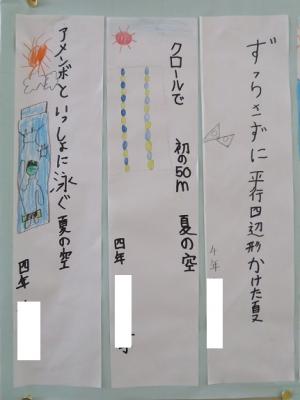 ずらさずに 平行四辺形かけた夏
4年
クロールで 初の50m 夏の空
四年
アメンボといっしょに泳ぐ夏の空
四年